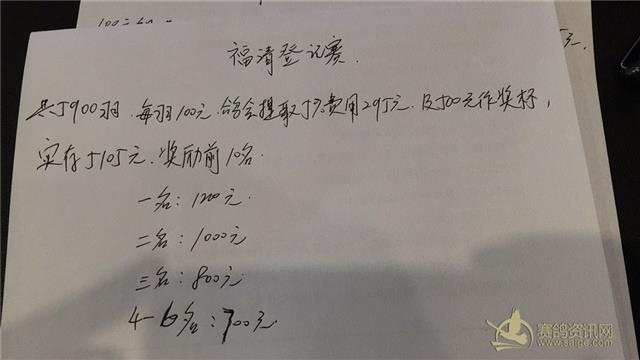 100二
元.
福清登记赛.
共59羽.每羽100元.鸽会提取5%费用295元.及500元作奖杯,
实存5105元.奖励前10名.
一名:1200元
二名:1000元
三名:800元
4-6名:700元
赛鸽资讯网
www.saige.com